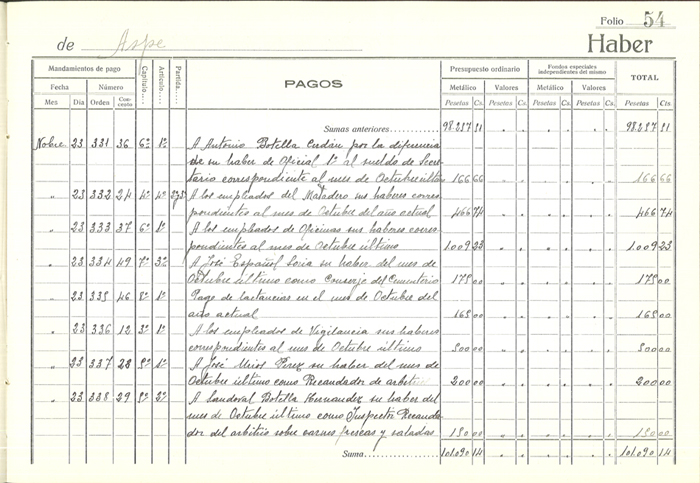 Folio 54
de Aspe
Haber
Mandamientos de pago
Fecha
Número
Mes Día Orden Concepto
Capítulo
Artículo
Partida
PAGOS
Presupuesto ordinario
Metálico
Valores
Fondos especiales
independientes del mismo
Metálico
Valores
TOTAL
Pesetas Cs. Pesetas Cs. Pesetas Cs. Pesetas Cs. Pesetas Cts.
Sumas anteriores 98.257 51 98.257 51
Nobre 23 331 36 6º 1º A Antonio Botella Cerdán por la diferencia
de su haber de Oficial 1º al sueldo de Secre
tario correspondiente al mes de Octubre último 166 66 166 66
" 23 332 24 4º 4º A los empleados del Matadero sus haberes corres
pondientes al mes de Octubre del año actual 466 74 466 74
" 23 333 37 6º 1º A los empleados de Oficinas sus haberes corres
pondientes al mes de Octubre último 1.009 23 1.009 23
" 23 334 49 7º 3º A José Español Soria su haber del mes de
Octubre último como Conserje del Cementerio 175 00 175 00
" 23 335 46 8º 1º Pago de lactancias en el mes de Octubre del
año actual 165 00 165 00
" 23 336 12 3º 1º A los empleados de Vigilancia sus haberes
correspondientes al mes de Octubre último 500 00 500 00
" 23 337 28 5º 1º A José Mira Pérez su haber del mes de
Octubre último como Recaudador de arbitrios 200 00 200 00
" 23 338 29 5º 2º A Sandoval Botella Hernandez su haber del
mes de Octubre último como Inspector Recauda
dor del arbitrio sobre carnes frescas y saladas 150 00 150 00
Suma 101.090 14 101.090 14